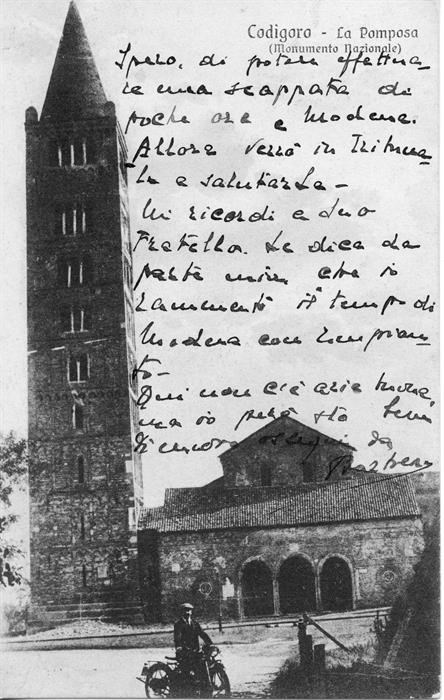 Codigoro - La Pomposa
(Monumento Nazionale)
Spero, di potere effettua
re una scappata di
poche ore a Modena.
Allora verrò in Tribuna
le a salutarLa -
Mi ricordi a Suo
Fratello. Le dica da
parte mia, che io
rammento il tempo di
Modena con rimpian
to -
Qui non c'è aria buona,
ma io però sto bene
ossequi da